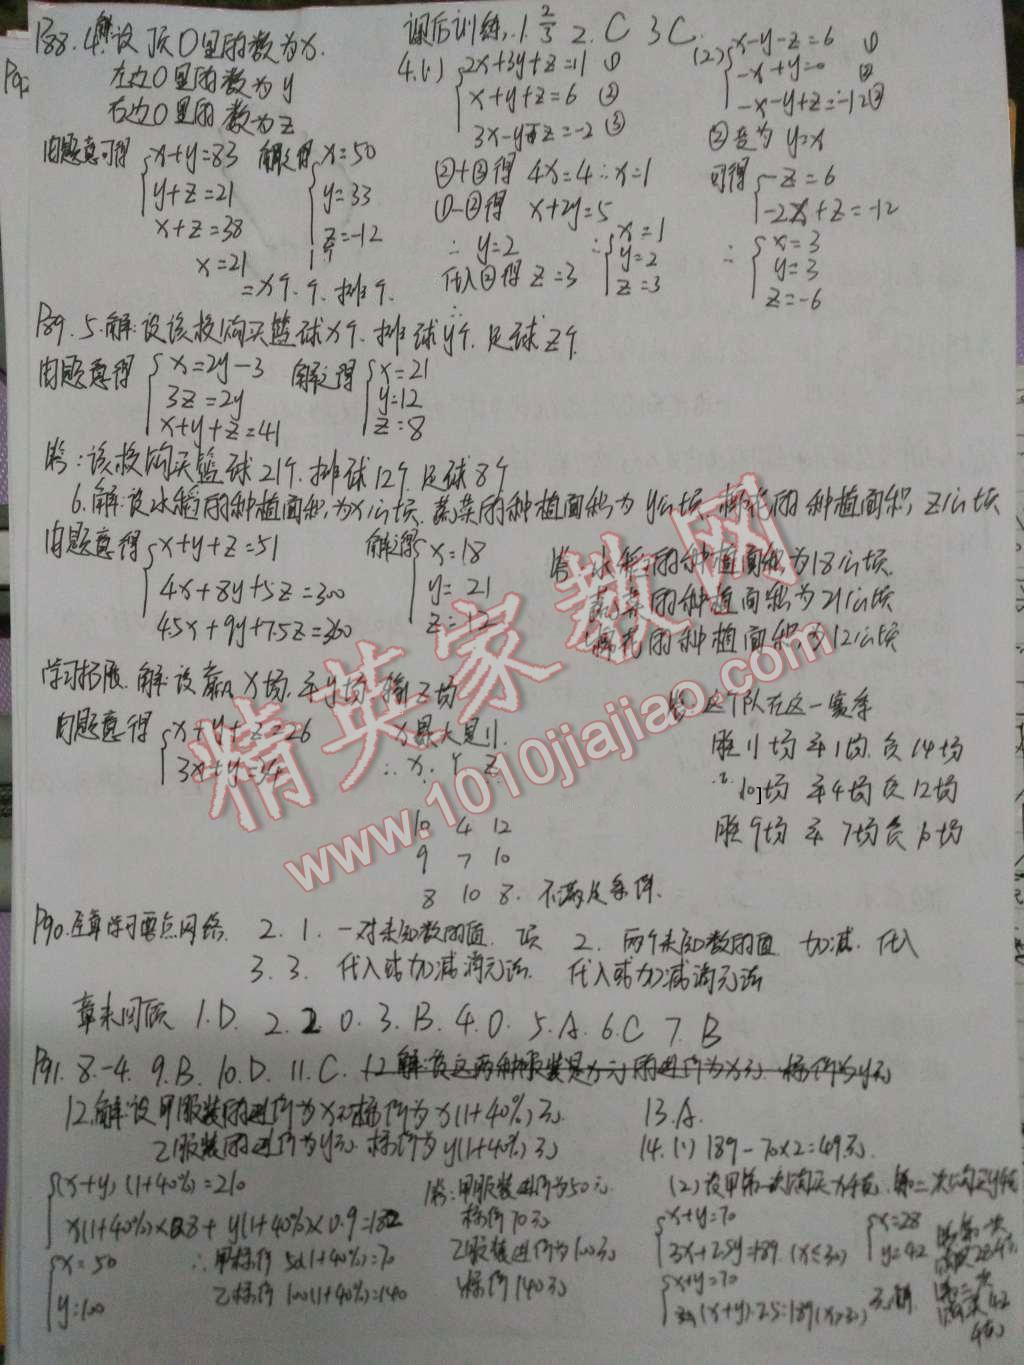 P88.4.解设顶○里的数为x.
左边○里的数为y
右边○里的数为z
由题意可得 x+y=83 解之得 x=50
y+z=21 y=33
x+z=38 z=-12
x=21
课后训练.1. 2/3 2. C 3 C.
4.(1) 2x+3y+z=11 ①
x+y+z=6 ②
3x-y-z=-2 ③
②+③得 4x=4 ∴x=1
①-②得 x+2y=5
∴ y=2 ∴ x=1
y=2
z=3
代入②得 z=3
(2) x-y-z=6 ①
-x+y=0 ②
-x-y+z=-12 ③
②变为 y=x
可得 -z=6
-2x+z=-12
∴ x=3
y=3
z=-6
P89.5.解:设该校购买篮球x个,排球y个.足球z个.
由题意得 x=2y-3 解之得 x=21
3z=2y y=12
x+y+z=41 z=8
答:该校购买篮球21个.排球12个.足球8个
6.解:设水稻的种植面积为x公顷.蔬菜的种植面积为y公顷.棉花的种植面积z公顷
由题意得 x+y+z=51 解之得 x=18
4x+8y+5z=300 y=21
4.5x+9y+7.5z=360 z=12
答:水稻的种植面积为18公顷.
蔬菜的种植面积为21公顷
棉花的种植面积为12公顷
学习拓展.解:设赢x场.平y场.输z场
由题意得 x+y+z=26 x最大是11.
3x+y=34 ∴ x. y z.
10 4 12
9 7 10
8 10 8. 不满足条件.
答:这个队在这一赛季
胜11场平1场.负14场
10场 平4场负12场
胜9场平7场负10场
P90.全章学习要点网络. 2. 1. 一对未知数的值. 项 2. 两个未知数的值 加减. 代入
3. 3. 代入或加减消元法. 代入或加减消元法
章末回顾 1.D. 2.2 0.3.B.4.D.5.A.6.C 7.B
P91.8.-4.9.B.10.D.11.C.
12.解:设甲服装的进价为x元标价为x(1+40%)元.
乙服装的进价为y元.标价为y(1+40%)元
(x+y)(1+40%)=210
x(1+40%)×0.8+y(1+40%)×0.9=182
x=50 ∴甲标价50(1+40%)=70
y=100 乙标价100(1+40%)=140
答:甲服装进价为50元.
标价70元
乙服装进价为100元
标价140元
13.A.
14.(1)189-70×2=49元.
(2)设甲第一次购买x千克.第二次购买y千克
x+y=70 x=28
3x+2.5y=189 (x≤30) y=42
x+y=70
(x+y)·2.5=189(x>30) 无解.
精英家教网
www.1010jiajiao.com